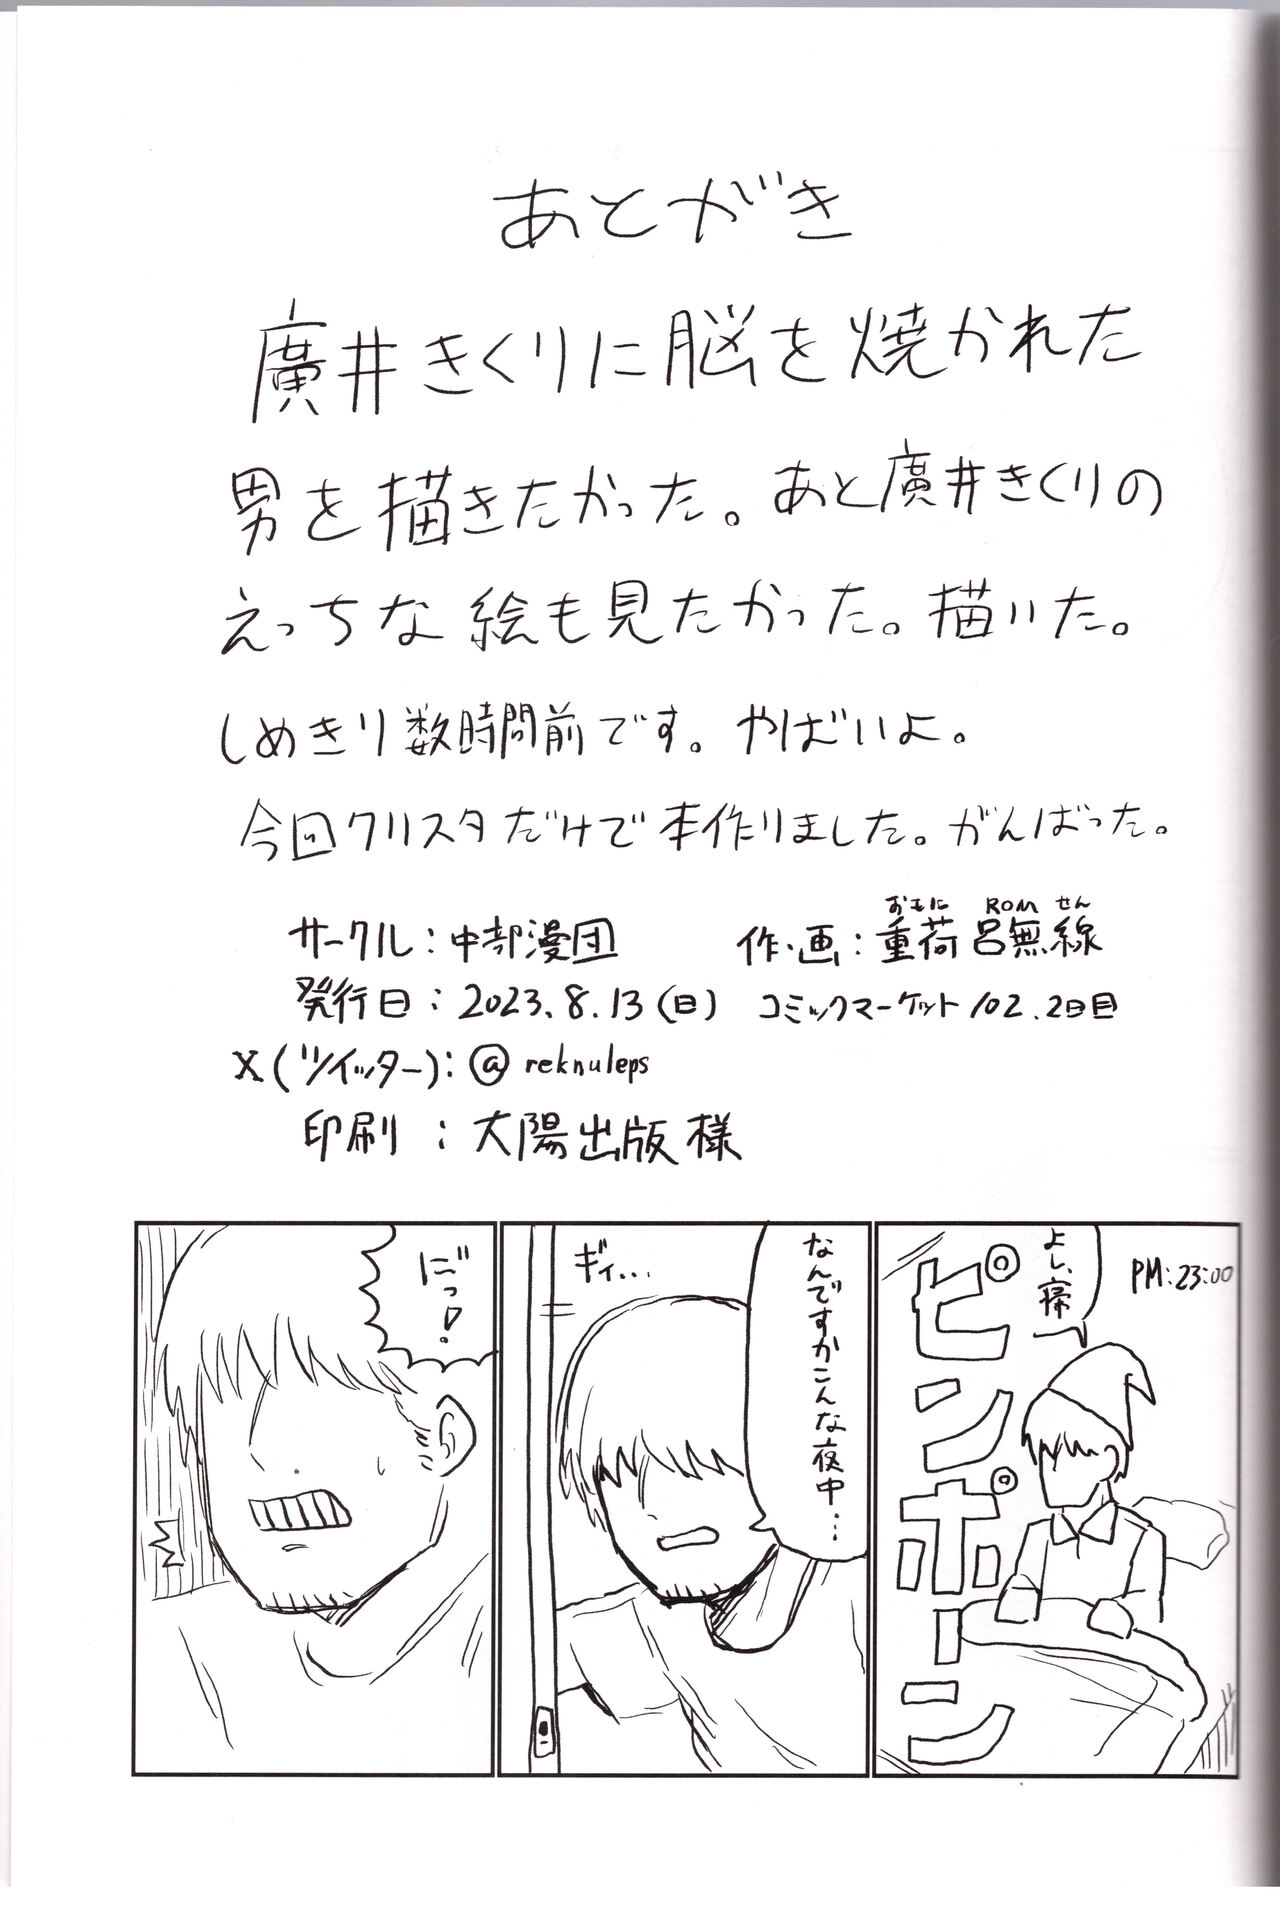 あとがき
廣井きくりに脳を焼かれた
男を描きたかった。あと廣井きくりの
えっちな絵も見たかった。描いた。
しめきり数時間前です。やばいよ。
今回クリスタだけで本作りました。がんばった。
サークル：中部漫団
おもに ROM せん
作・画：重荷 呂無線
発行日：2023.8.13(日) コミックマーケット102.2日目
X(ツイッター)：@reknuleps
印刷：大陽出版様
PM:23:00
よし、寝
ピンポーン
なんですかこんな夜中…
ギィ…
に゛っ！